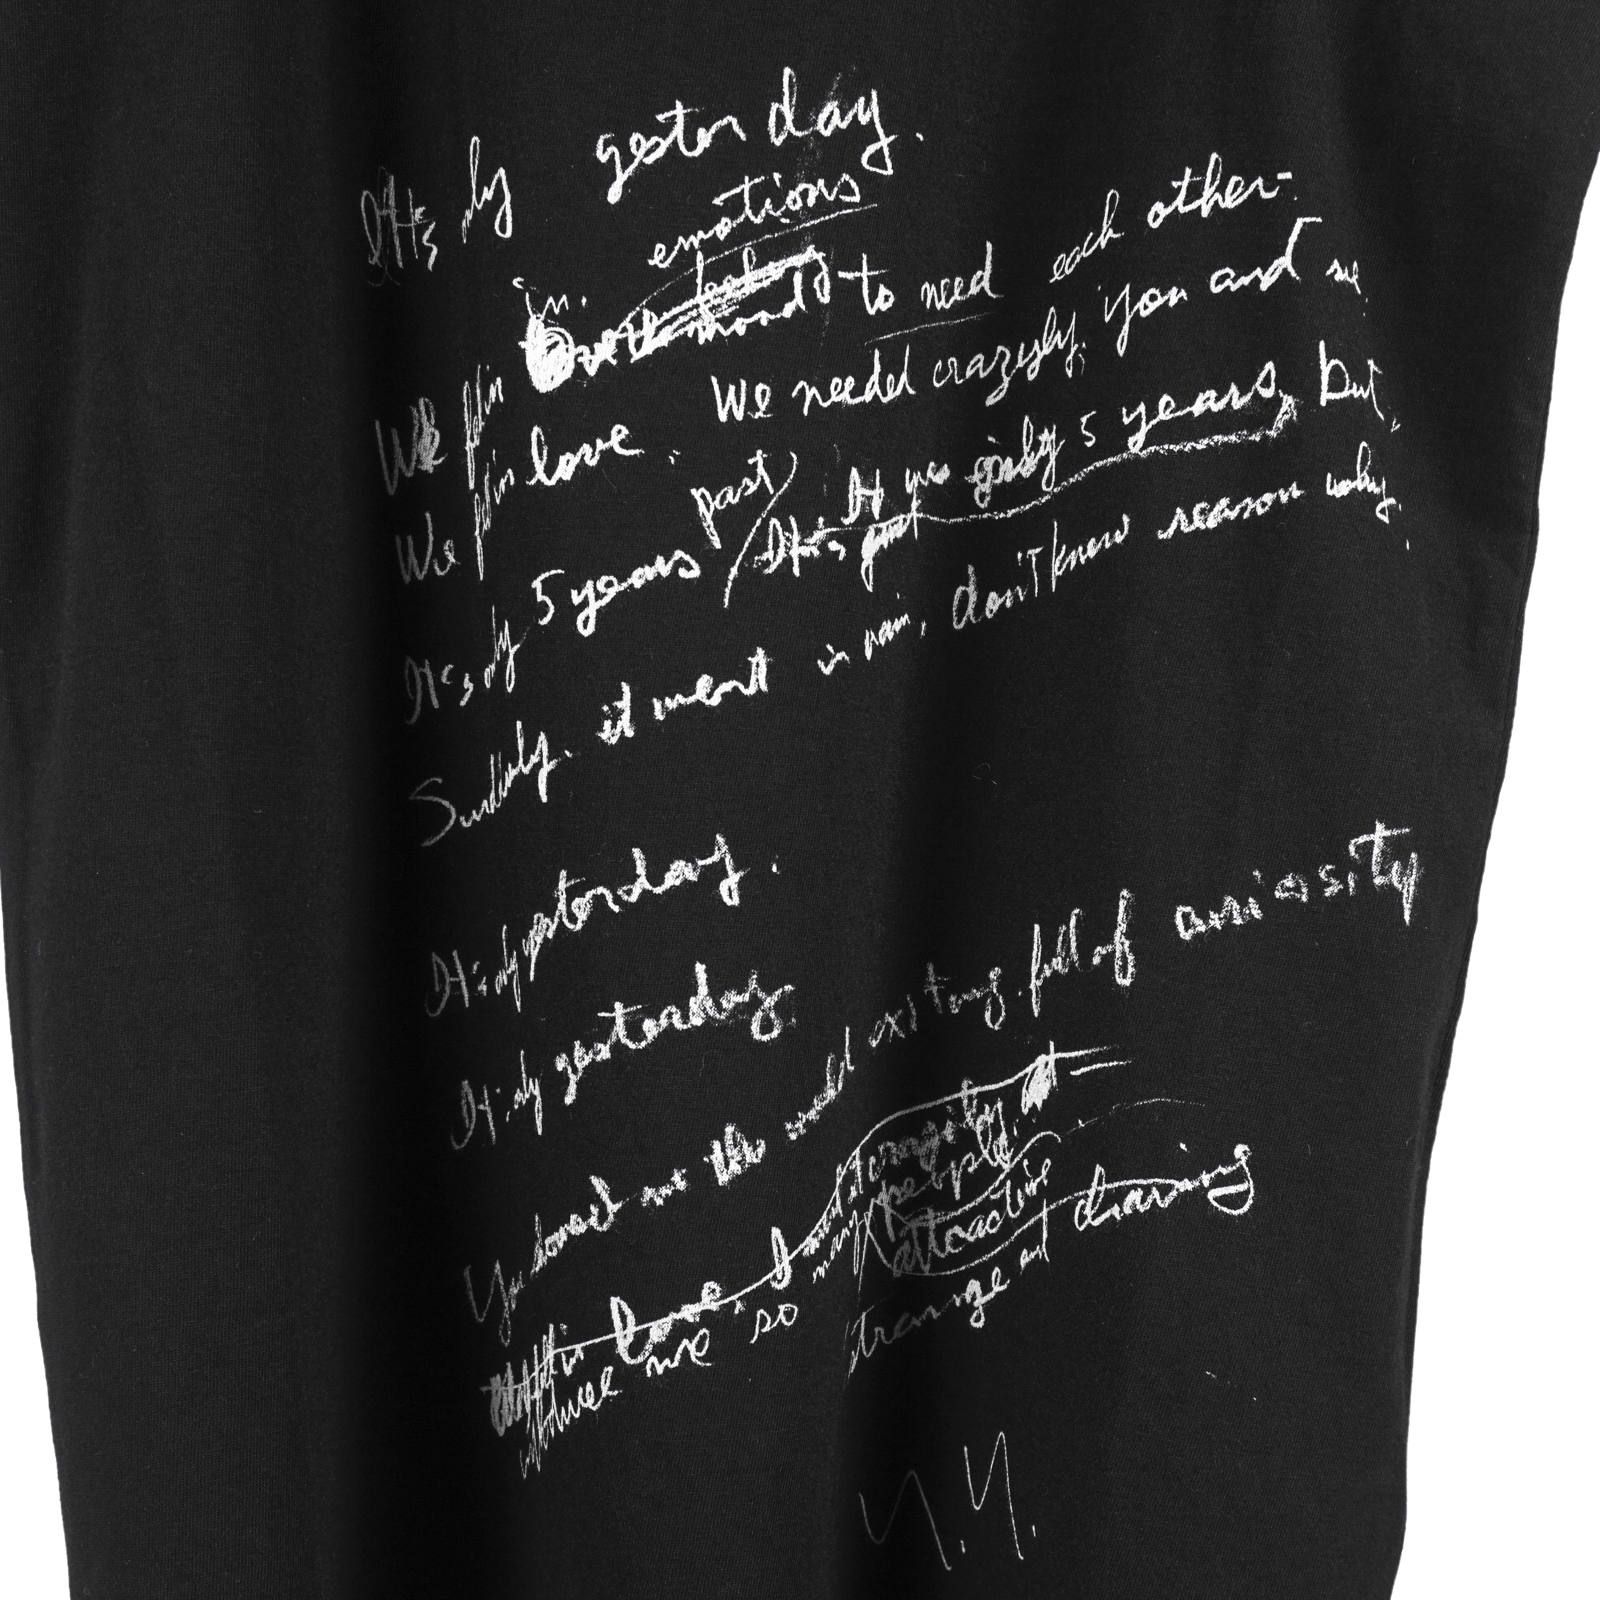 It's only yesterday.
in. emotions
We fell in to need each other.
We fell in love. We needed crazyly, you and me
It's only 5 years past It was only 5 years, but,
It's just
Suddely. it went in vain, don't know reason why.
It's only yesterday.
It's only yesterday.
You me the world existing. full of curiosity
in love, I
many people
attractive
me so strange and drawing
Y.Y.